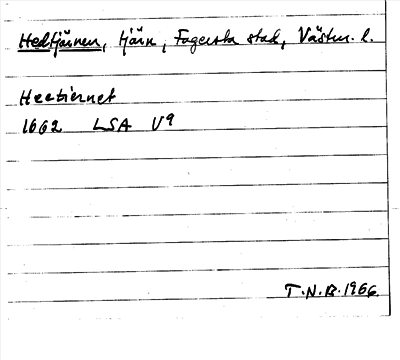 Hedtjärnen, tjärn, Fagersta stad, Västm. l.
Heetiernet
1662 LSA V9
T.N.B. 1966